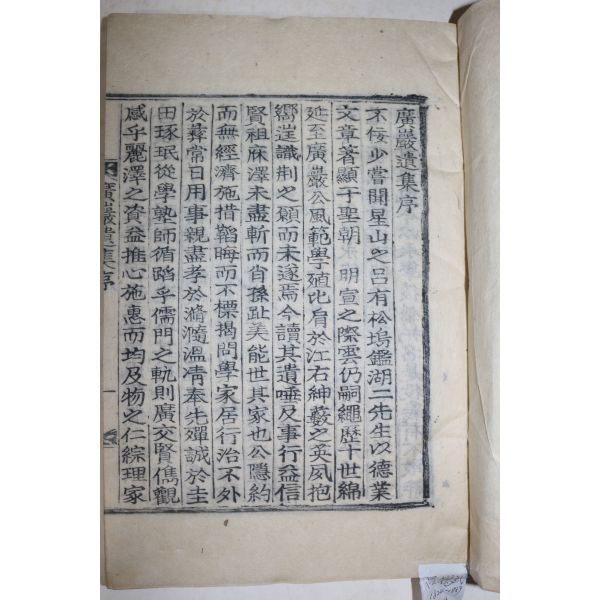 廣巖遺集序
不佞少嘗聞星山之呂有松塢鑑湖二先生以德業
文章著顯于聖朝 明宣之際雲仍嗣繩歷十世綿
延至廣巖公風範學殖比肩於江右紳䕫之英夙抱
嚮逞識荊之願而未遂焉今讀其遺唾及事行益信
賢祖庥澤未盡斬而肖孫趾美能世其家也公隱約
而無經濟施措韜晦而不標揭問學家居行治不外
於彝常日用事親盡孝於滫瀡溫凊奉先殫誠於圭
田琢珉從學塾師循蹈乎儒門之軌則廣交賢儁觀
感乎麗澤之資益推心施惠而均及物之仁綜理家
廣巖遺集序